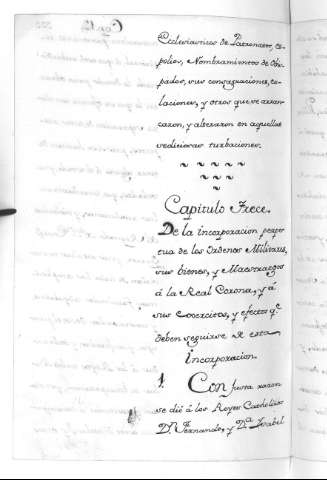 Ecleciasticos de Patronatos, es-
polios, Nombramientos de Obis-
pados, sus consagraciones, co-
laciones, y otros que se arran-
caron, y alteraron en aquellas
sediciosas turbaciones.
Capitulo Trece.
De la incorporacion perpe-
tua de las Ordenes Militares,
sus bienes, y Maestrazgos
á la Real Corona, y á
sus Exercitos, y efectos q.^e
deben seguirse de esta
incorporacion.
1. Con justa razon
se dió á los Reyes Catholicos
D.^n Fernando, y D.^a Isabél